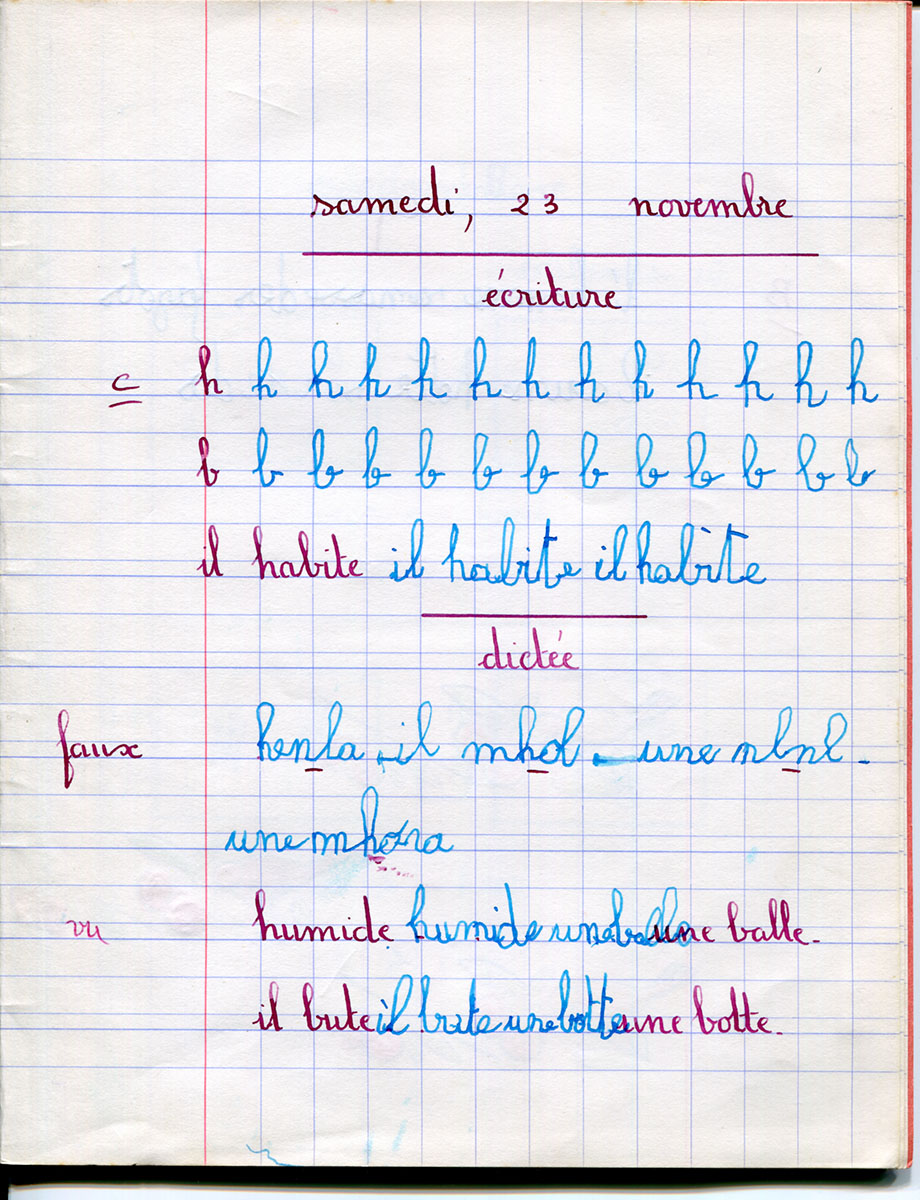 samedi, 23 novembre
écriture
c h h h h h h h h h h h h h
b b b b b b b b b b b b b
il habite il habite il habite
dictée
faux henla . il mhol . une nlnl .
une mhora
vu humide humide une balle une balle.
il bute il bute une botte une botte.